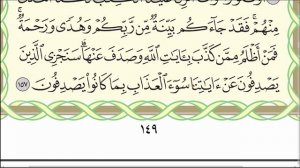 مِنْهُمْ ۚ فَقَدْ جَآءَكُم بَيِّنَةٌ مِّن رَّبِّكُمْ وَهُدًى وَرَحْمَةٌ ۚ
فَمَنْ أَظْلَمُ مِمَّن كَذَّبَ بِـَٔايَـٰتِ ٱللَّهِ وَصَدَفَ عَنْهَا ۗ سَنَجْزِى ٱلَّذِينَ
يَصْدِفُونَ عَنْ ءَايَـٰتِنَا سُوٓءَ ٱلْعَذَابِ بِمَا كَانُوا۟ يَصْدِفُونَ ١٥٧
١٤٩